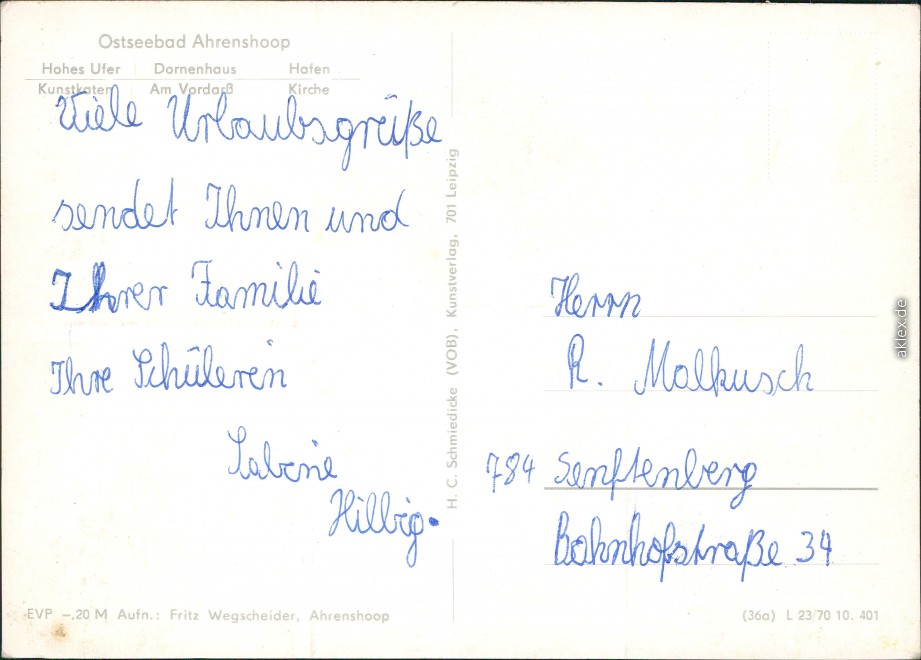 Ostseebad Ahrenshoop
Hohes Ufer Dornenhaus Hafen
Kunstkaten Am Vordarß Kirche
Viele Urlaubsgrüße
sendet Ihnen und
Ihrer Familie
Ihre Schülerin
Sabine
Hillbig.
H. C. Schmiedicke (VOB), Kunstverlag, 701 Leipzig
Herrn
R. Malkusch
784 Senftenberg
Bahnhofstraße 34
EVP –,20 M Aufn.: Fritz Wegscheider, Ahrenshoop
(36a) L 23/70 10. 401
aklex.de